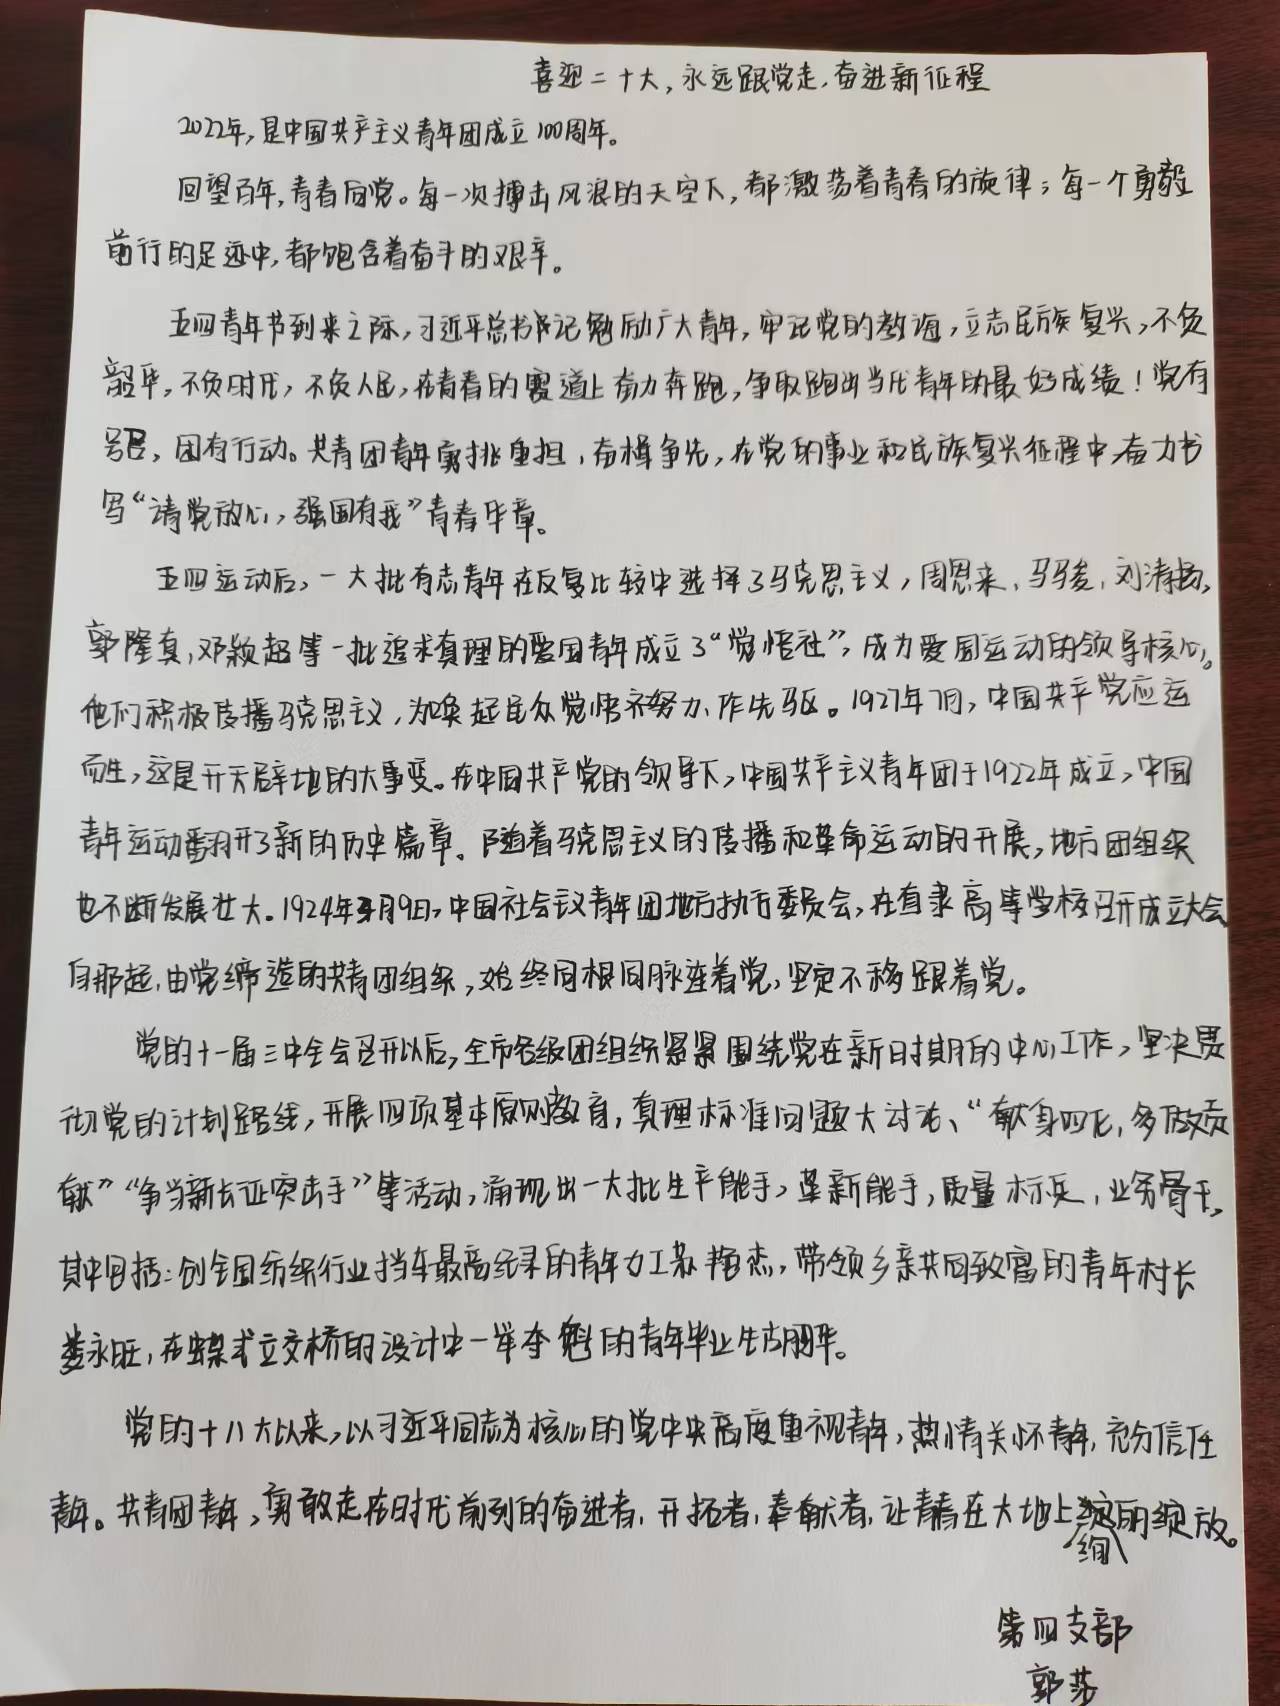 喜迎二十大,永远跟党走,奋进新征程
2022年,是中国共产主义青年团成立100周年。
回望百年,青春向党。每一次搏击风浪的天空下,都激荡着青春的旋律;每一个勇毅
前行的足迹中,都饱含着奋斗的艰辛。
五四青年节到来之际,习近平总书记勉励广大青年,牢记党的教诲,立志民族复兴,不负
韶华,不负时代,不负人民,在青春的赛道上奋力奔跑,争取跑出当代青年的最好成绩!党有
号召,团有行动。共青团青年勇挑重担,奋楫争先,在党的事业和民族复兴征程中,奋力书
写“请党放心,强国有我”青春华章。
五四运动后,一大批有志青年在反复比较中选择了马克思主义,周恩来,马骏,刘清扬,
郭隆真,邓颖超等一批追求真理的爱国青年成立了“觉悟社”,成为爱国运动的领导核心。
他们积极传播马克思主义,为唤起民众觉悟努力、作先驱。1921年7月,中国共产党应运
而生,这是开天辟地的大事变。在中国共产党的领导下,中国共产主义青年团于1922年成立,中国
青年运动翻开了新的历史篇章。随着马克思主义的传播和革命运动的开展,地方团组织
也不断发展壮大。1924年3月9日,中国社会主义青年团地方执行委员会,在直隶高等学校召开成立大会
自那起,由党缔造的共青团组织,始终同根同脉连着党,坚定不移跟着党。
党的十一届三中全会召开以后,全市各级团组织紧紧围绕党在新时期的中心工作,坚决贯
彻党的计划路线,开展四项基本原则教育,真理标准问题大讨论、“献身四化,多做贡
献”“争当新长征突击手”等活动,涌现出一大批生产能手,革新能手,质量标兵,业务骨干,
其中包括:创全国纺织行业挡车最高纪录的青年女工苏艳杰,带领乡亲共同致富的青年村长
娄永旺,在蝶式立交桥的设计中一举夺魁的青年毕业生胡丽华。
党的十八大以来,以习近平同志为核心的党中央高度重视青年,热情关怀青年,充分信任
青年。共青团青年,勇敢走在时代前列的奋进者,开拓者,奉献者,让青春在大地上绚丽绽放。
第四支部
郭莎